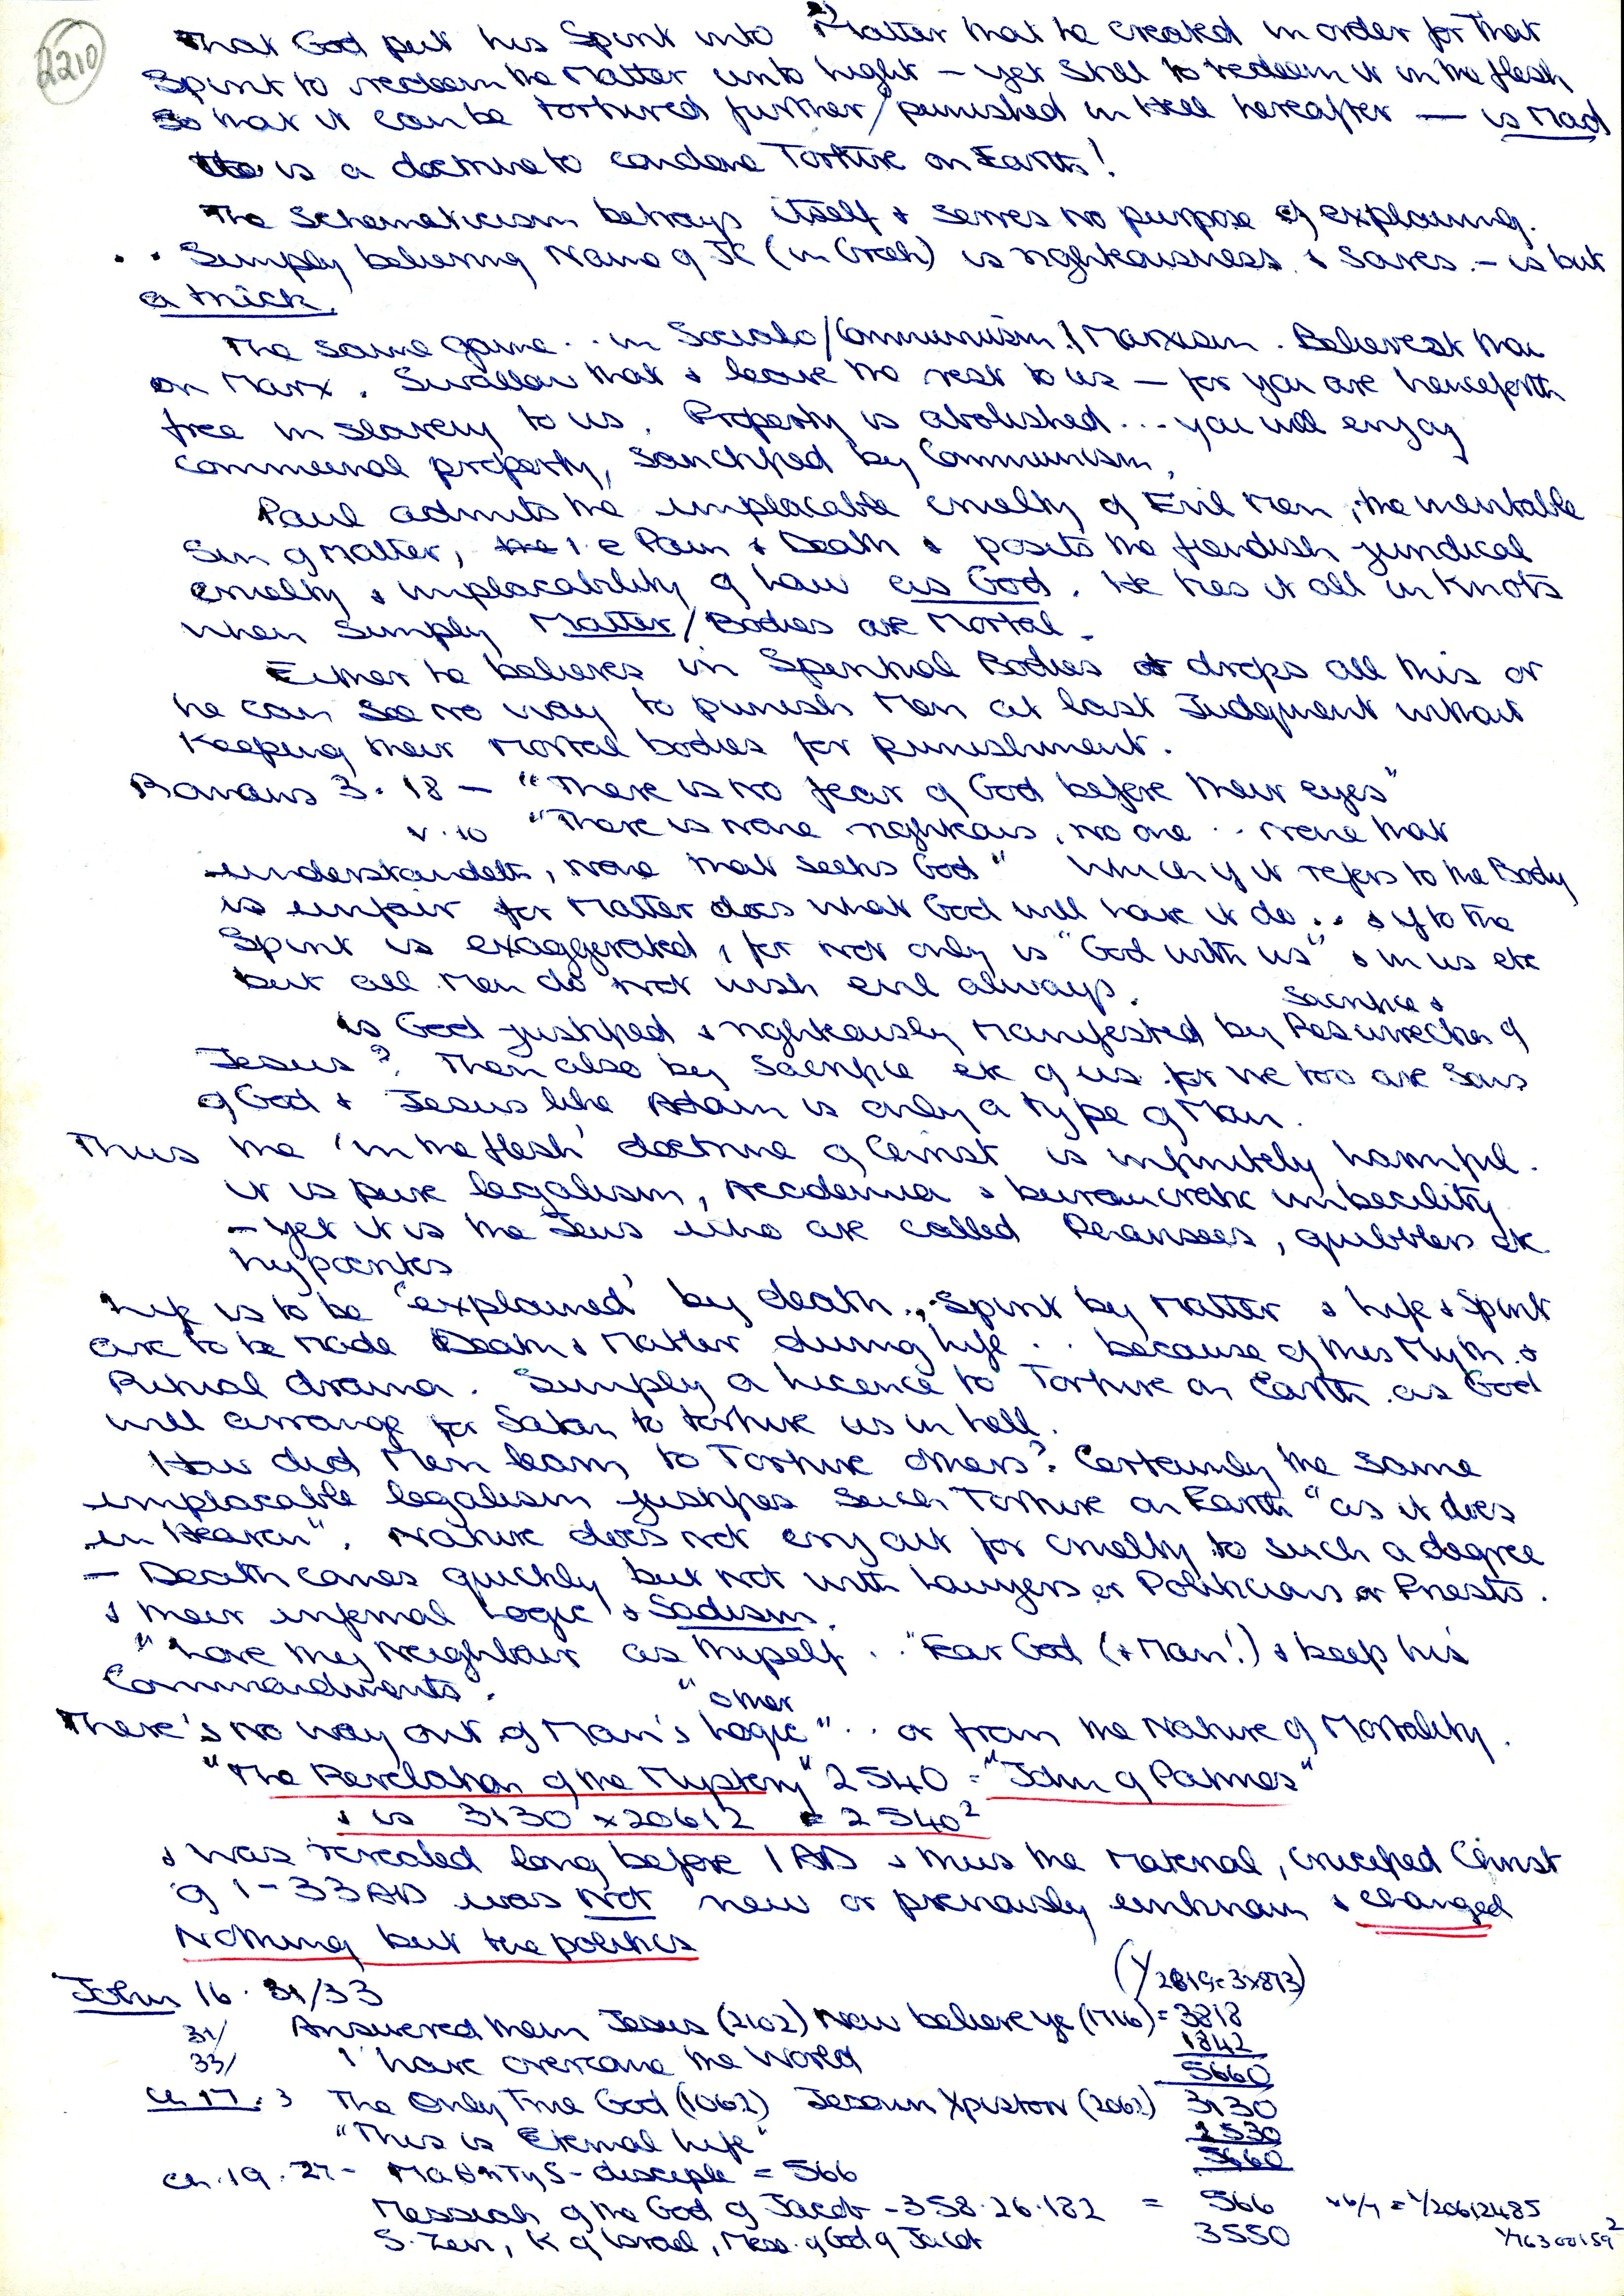 2210
That God put his Spirit into Matter that he created in order for that
Spirit to redeem the Matter unto Light – yet still to redeem it in the flesh
So that it can be tortured further/punished in Hell hereafter — is Mad
is a doctrine to condone Torture on Earth!
The Schematicism betrays itself & serves no purpose of explaining.
. . Simply believing Name of JC (in Greek) is righteousness & saves. – is but
a trick.
The same game . . in Socialo/Communism!/Marxism. Believest thou
on Marx. Swallow that & leave the rest to us — for you are henceforth
free in slavery to us. Property is abolished... you will enjoy
communal property, sanctified by Communism.
Paul admits the implacable cruelty of Evil Men, the inevitable
Sin of Matter, i.e Pain & Death & posits the fiendish juridical
cruelty & implacability of Law as God. He ties it all in Knots
when simply Matter/Bodies are Mortal.
Either he believes in Spiritual Bodies & drops all this or
he can see no way to punish Men at last Judgment without
Keeping their Mortal bodies for punishment.
Romans 3. 18 — "There is no fear of God before their eyes"
v. 10 "There is none righteous, no one . . none that
understandeth, none that seeks God" Which if it refers to the Body
is unfair for Matter does what God will have it do . . & if to the
Spirit is exaggerated, for not only is "God with us" & in us etc
but all Men do not wish evil always.
Sacrifice &
is God justified & righteously Manifested by Resurrection of
Jesus? Then also by Sacrifice etc of us for we too are Sons
of God & Jesus like Adam is only a type of Man.
Thus the 'in the flesh' doctrine of Christ is infinitely harmful.
it is pure legalism, Academia & bureaucratic imbecility
– Yet it is the Jews who are called Pharisees, quibblers etc.
hypocrites
Life is to be 'explained' by death . . Spirit by Matter & Life & Spirit
are to be made Death & Matter during life . . because of this Myth &
Ritual drama. Simply a Licence to Torture on Earth as God
will arrange for Satan to torture us in hell.
How did Men learn to Torture others? Certainly the same
implacable legalism justifies such Torture on Earth "as it does
in Heaven". Nature does not cry out for cruelty to such a degree
– Death comes quickly but not with Lawyers or Politicians or Priests.
& their infernal Logic & Sadism.
"Love thy Neighbour as Thyself . . "Fear God (& Man!) & keep his
Commandments.
"other
There's no way out of Man's Logic" . . or from the Nature of Mortality.
"The Revelation of the Mystery" 2540 = "John of Patmos"
& is 3130 x 20612 = 2540²
& was revealed long before 1 AD & thus the Material, crucified Christ
of 1–33 AD was Not new or previously unknown & changed
Nothing but the politics
(Y 2819=3x873)
John 16. 31/33
31/ Answered them Jesus (2102) Now believe ye (1716) = 3818
33/ I have overcome the World 1842
5660
Ch 17. 3 The Only True God (1062) Jesoun Xpiston (2062) 3130
"This is Eternal Life" 2530
5660
Ch. 19. 27 – MaθhTyS – disciple = 566
Messiah of the God of Jacob – 358.26.182 = 566 x6/7 = 1/20612485
S. Zein, K of Israel, Mess. of God of Jacob 3550 1/76300159²